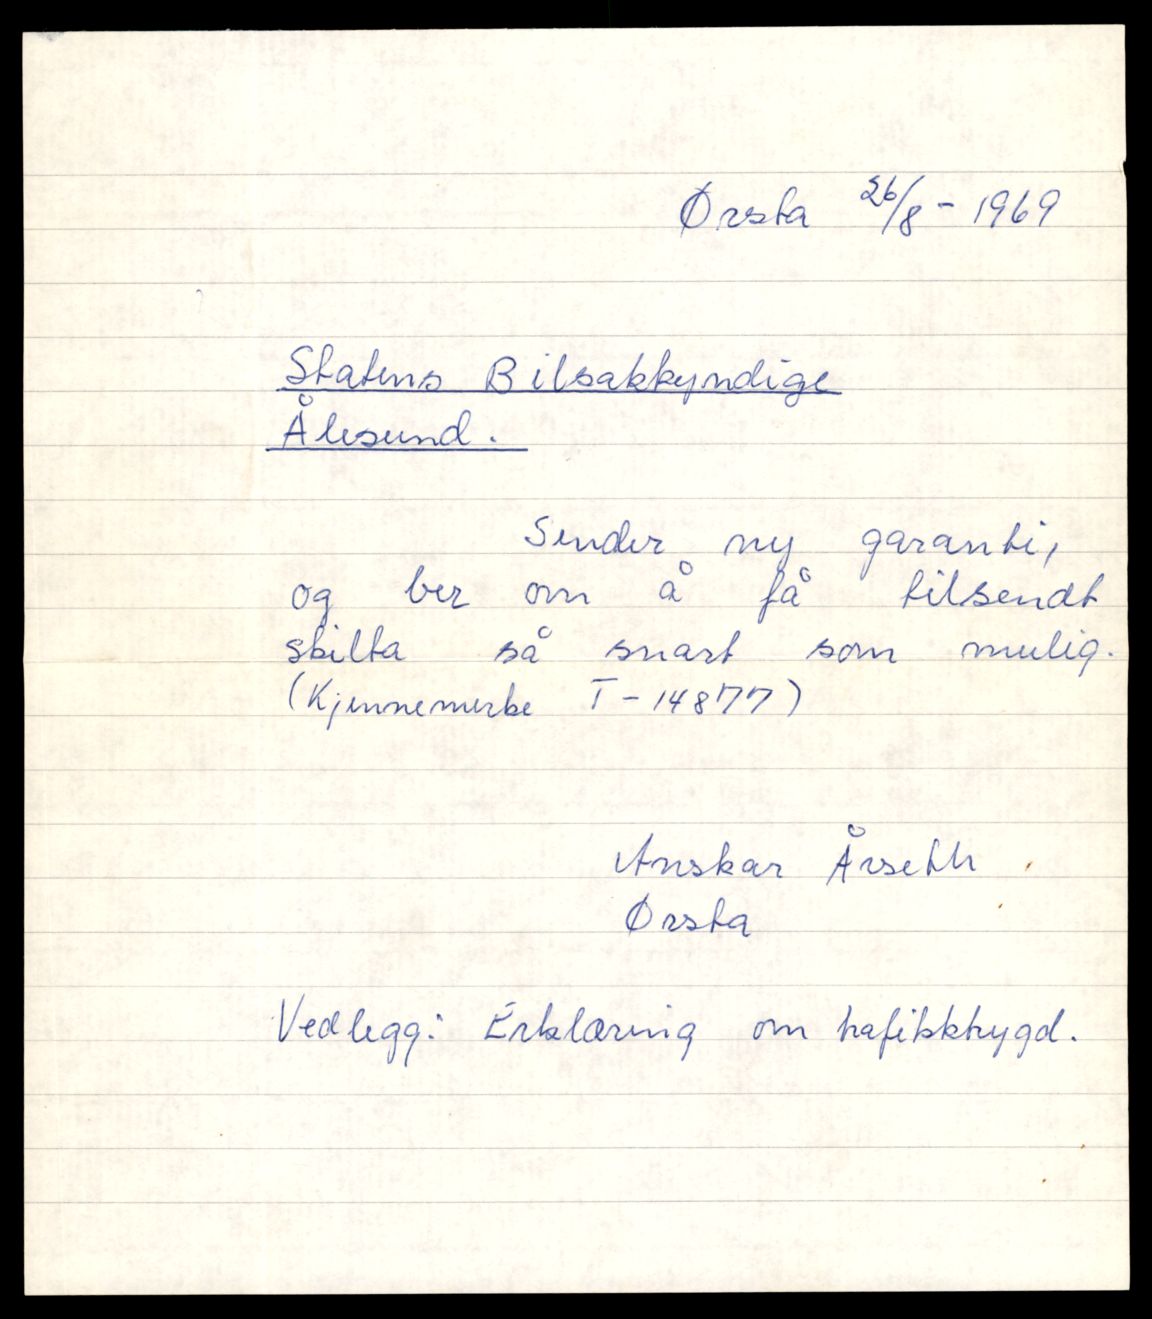 Ørsta 26/8 - 1969
Statens Bilsakkyndige
Ålesund.
Sender ny garanti,
og ber om å få tilsendt
skilta så snart som mulig.
(Kjennemerke T-14877)
Anskar Årseth
Ørsta
Vedlegg: Erklæring om trafikktrygd.